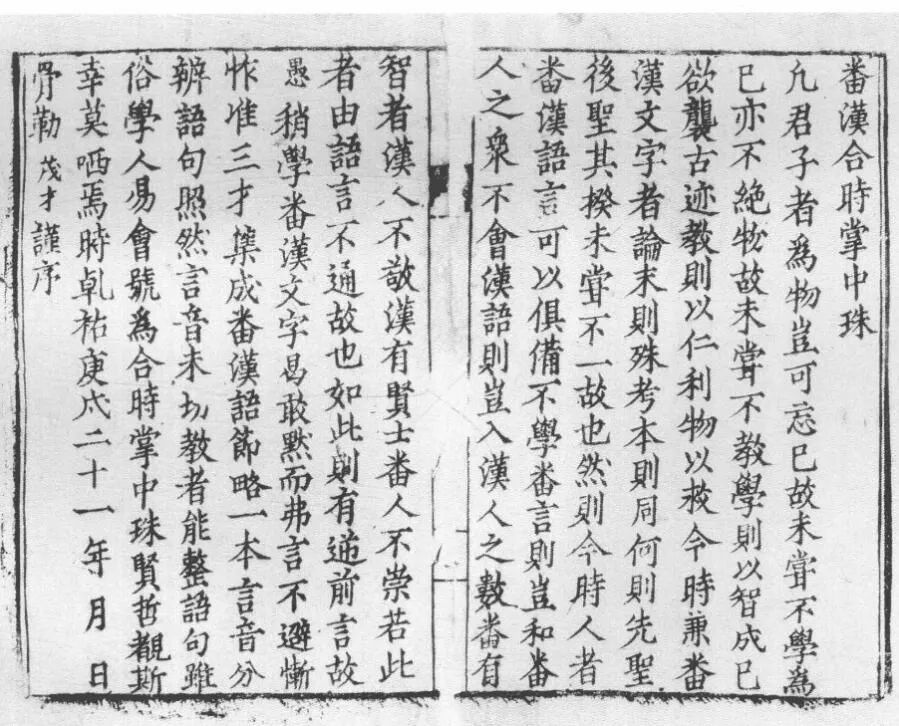 番漢合時掌中珠
凡君子者為物豈可忘己故未甞不學為
己亦不絕物故未甞不教學則以智成己
欲襲古迹教則以仁利物以救今時兼番
漢文字者論末則殊考本則同何則先聖
後聖其揆未甞不一故也然則今時人者
番漢語言可以俱備不學番言則豈和番
人之衆不會漢語則豈入漢人之數番有
智者漢人不敬漢有賢士番人不崇若此
者由語言不通故也如此則有逆前言故
愚稍學番漢文字曷敢默而弗言不避慚
怍准三才集成番漢語節略一本言音分
辨語句照然言音未切教者能整語句雖
俗學人易會號為合時掌中珠賢哲覩斯
幸莫哂焉時乹祐庚戌二十一年月日
骨勒茂才謹序